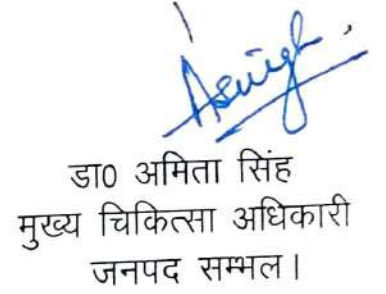 Asingh
डा0 अमिता सिंह
मुख्य चिकित्सा अधिकारी
जनपद सम्भल।